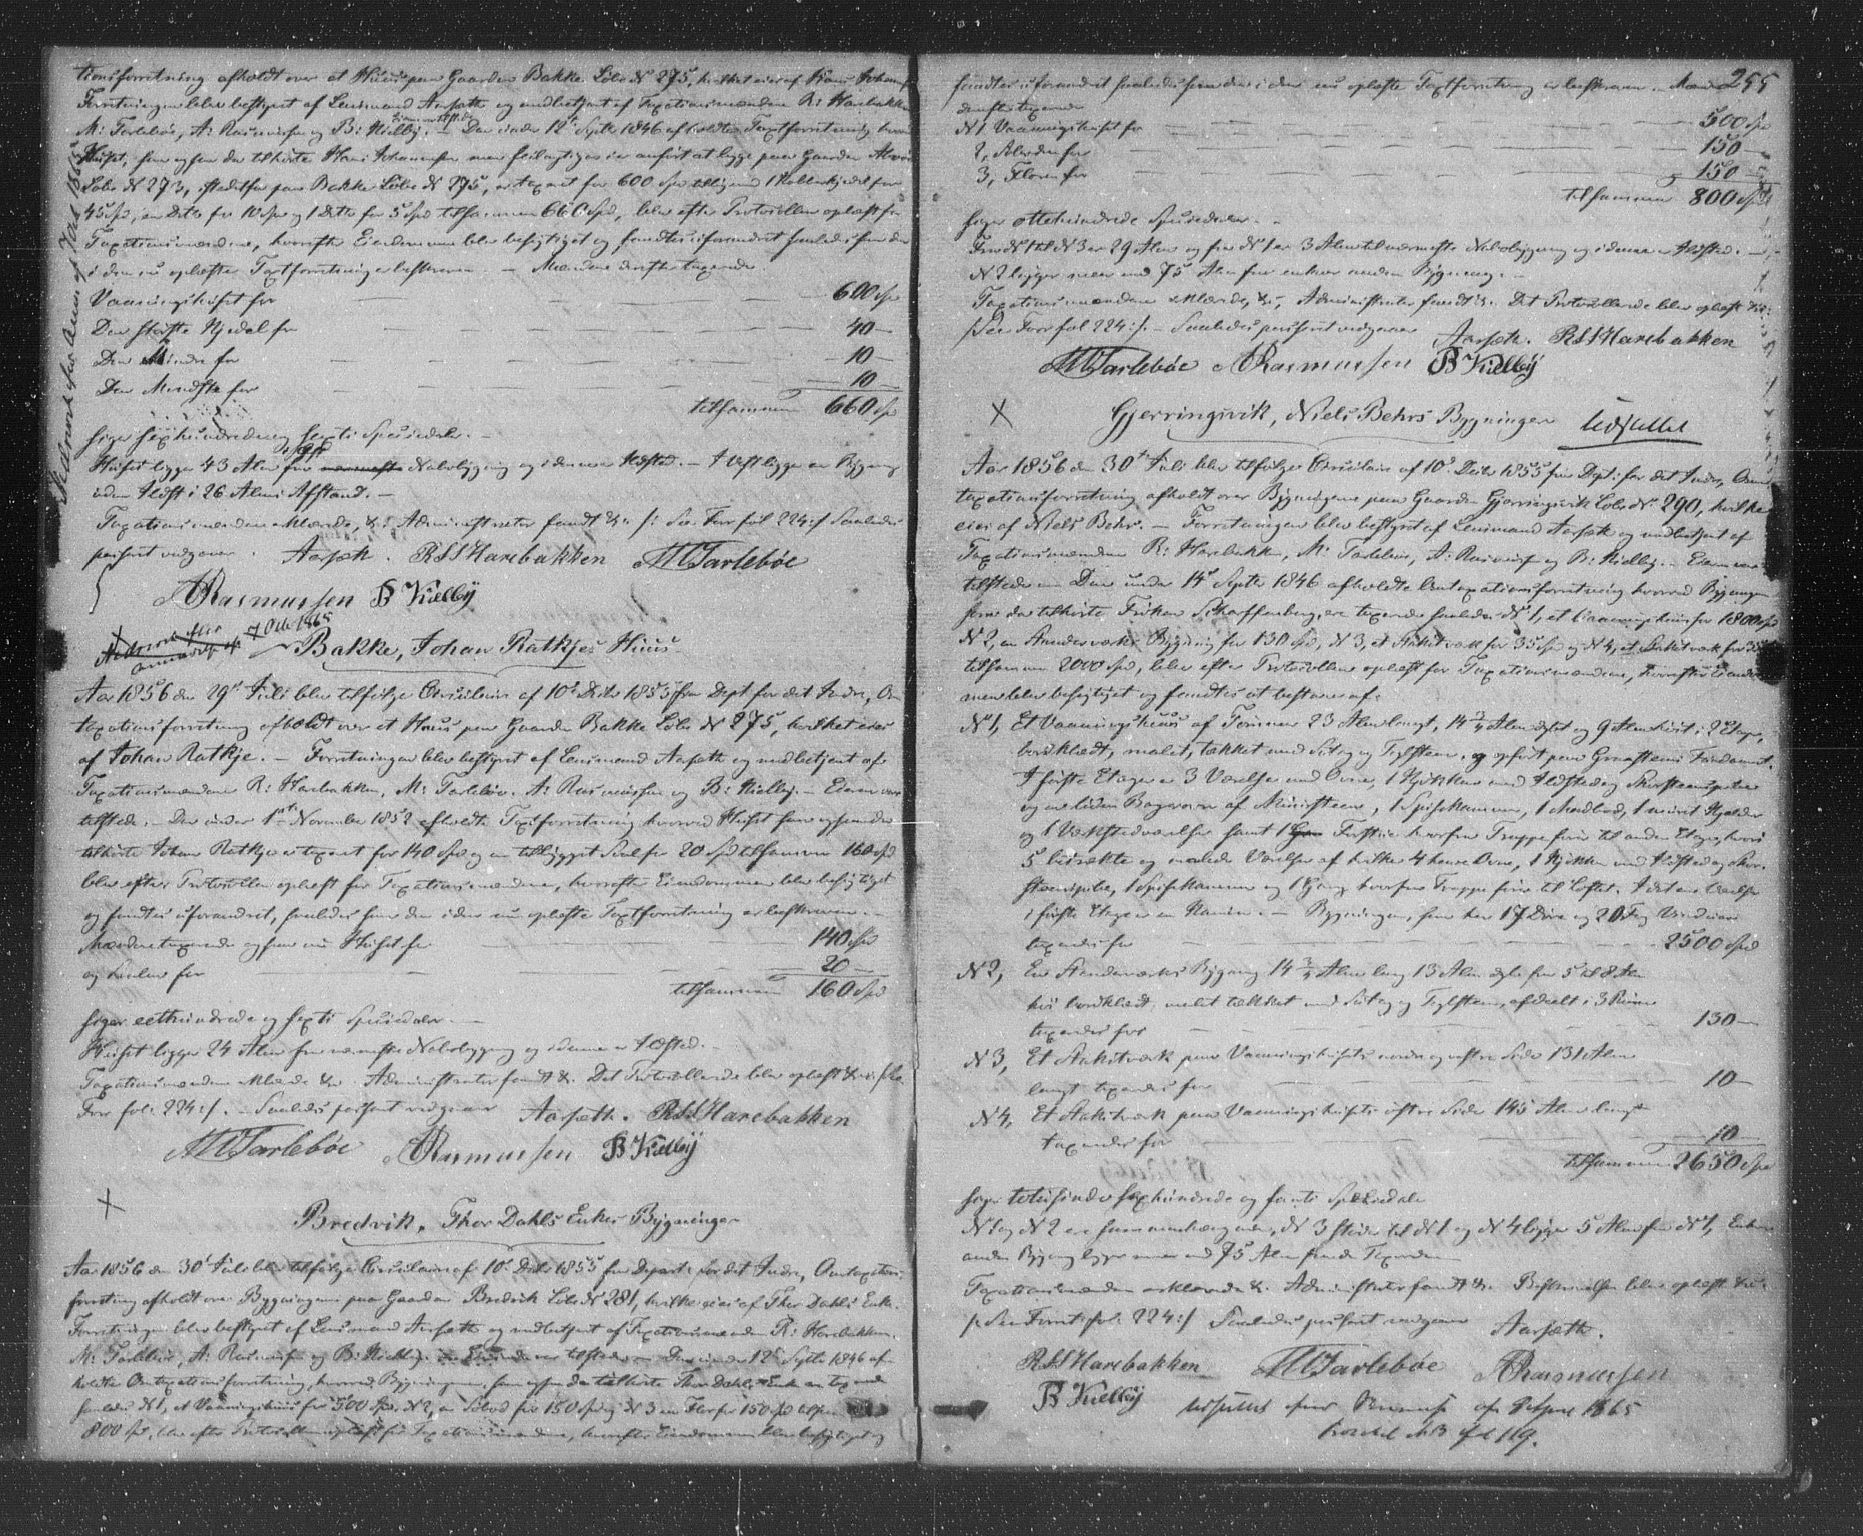 tionsforretning afholdt over et Huus paa Gaarden Bakke Løbe N 275, hvilket eies af Hans Johans
Forretningen blev bestyret af Lensmand Aarsæth og medbetjent af Taxationsmændene R: Harebakken
M: Tarlebøe, A: Rasmussen og B: Kielbÿ. – Den under 12te Septb 1846 afholdte Taxtforretning hvor
Huset, som ogsaa da tilhørte Hans Johannesen men feilagtigen er anført at ligge paa Gaarden
Løbe N 273, istedetfor paa Bakke Løbe N 275, er taxeret for 600 Spd tilligemed 1 Kobberkjedel for
45 Spd, en Ditto for 10 Spd og 1 ditto for 5 Spd tilsammen 660 Spd, blev efter Protocollen oplæst for
Taxationsmændene, hvorefter Eiendommen blev besigtiget og fandtes uforandret saaledes som den
i den nu oplæste Taxtforretning er beskreven. – Mændene derefter taxerede
Vaaningshuset for 600 Spd
Den største Kjedel for 40 –
Den Mindre for 10 –
Den Mindste for 10 –
tilsammen 660 Spd
siger sexhundrede og sexti Speciedaler. –
Huset ligger 43 Alen fra Nabobygning og i denne er Ildsted. – I Vest ligger en Bygning
uden Ildst i 26 Alens Afstand. –
Taxationsmændene erklærede, &: Administrator fandt &: /: See Forr fol 224:/ Saaledes
passeret vedgaaer. Aarsæth. RSSHarebakken MCTarlebøe
ARasmussen B Kielbÿ
Nedrevet ifør Anm af 7 Oct 1865
7 Octb 1865
Bakke, Johan Ratkjes Huus
Aar 1856 den 29de Juli blev tilfølge Circulaire af 10de Decbr 1855 fra Dept for det Indre, Om
taxationsforretning afholdt over et Huus paa Gaarden Bakke Løbe N 275, hvilket eies
af Johan Ratkje. – Forretningen blev bestyret af Lensmand Aarsæth og medbetjent af
Taxationsmændene R: Harebakken, M: Tarlebøe, A: Rasmussen og B: Kielbÿ. – Eieren var
tilstede. – Den under 1ste November 1852 afholdte Taxtforretning hvorved Huset som ogsaa da
tilhørte Johan Ratkje er taxeret for 140 Spd og en tilbygget for 20 Spd tilsammen 160 Spd
blev efter Protocollen oplæst for Taxationsmændene, hvorefter Eiendommen blev besigtiget
og fandtes uforandret, saaledes som den i den nu oplæste Taxtforretning er beskreven. –
Mændene taxerede ogsaa nu Huset for 140 Spd
og for 20 –
tilsammen 160 Spd
siger eethundrede og sexti Speciedaler. –
Huset ligger 24 Alen fra nærmeste Nabobygning og i denne er Ildsted. –
Taxationsmændene erklærede &: Administrator fandt &. Det Protocollerede blev oplæst &c. /: See
Forr fol: 224:/. – Saaledes passeret vedgaaer Aarsæth. RSSHarebakken
MCTarlebøe ARasmussen B Kielbÿ
Bredvik, Thor Dahls Enkes Bygninger
Aar 1856 den 30te Juli blev tilfølge Circulaire af 10de Decbr 1855 fra Departet for det Indre, Omtaxations-
forretning afholdt over Bygningerne paa Gaarden Bredvik Løbe N 281, hvilke eies af Thor Dahls Enke.
Forretningen blev bestyret af Lensmand Aarsæth og medbetjent af Taxationsmændene R: Harebakken,
M: Tarlebøe, A: Rasmussen og B: Kielbÿ. Eierinden var tilstede. – Den under 12te Septb 1846 af-
holdte Omtaxationsforretning, hvorved Bygningerne, som ogsaa da tilhørte Thor Dahls Enke er taxerede
saaledes N 1, et Vaaningshuus for 500 Spd, N 2, en for 150 Spd og N 3 en Flor for 150 Spd tilsammen
800 Spd, blev efter Protocollen oplæst for Taxationsmændene, hvorefter Eiendommen blev besigtiget og
255
fandtes uforandret saaledes som den i den nu oplæste Taxtforretning er beskreven. Mændene
derefter taxerede
N 1 Vaaningshuset for 500 Spd
2, for 150 –
3, Floren for 150 –
tilsammen 800 Spd
siger ottehundrede Speciedaler. –
Fra N 1 til N 3 er 29 Alen og fra N 1 er 3 Alen til nærmeste Nabobygning og i denne er Ildsted. –
N 2 ligger meer end 75 Alen fra enhver anden Bygning. –
Taxationsmændene erklærede, &:, Administrator fandt &. Det Protocollerede blev oplæst &c:
/: See Forr fol 224:/. – Saaledes passeret vedgaaer Aarsæth. RSSHarebakken
MCTarlebøe ARasmussen B Kielbÿ
Gjerringsvik, Niels Behrs Bygninger Udslettet
Aar 1856 den 30te Juli blev tilfølge Circulaire af 10de Decbr 1855 fra Dept: for det Indre, Om-
taxationsforretning afholdt over Bygningerne paa Gaarden Gjerringsvik Løbe No 290, hvilke
eies af Niels Behr. – Forretningen blev bestyret af Lensmand Aarsæth og medbetjent af
Taxationsmændene R: Harebakken, M: Tarlebøe, A: Rasmussen og B: Kielbÿ. – Eieren var
tilstede. – Den under 14de Septb 1846 afholdte Omtaxationsforretning hvorved Bygningerne
som da tilhørte Frøken Scharffenberg, ere taxerede saaledes N 1, et Vaaningshuus for 1800 Spd
N 2, en Standerværks Bygning for 130 Spd, N 3, et Stakitværk for 35 Spd og N 4, et Stakitværk for 35
tilsammen 2000 Spd, blev efter Protocollen oplæst for Taxationsmændene, hvorefter Eiendom-
men blev besigtiget og fandtes at bestaae af:
N 1, Et Vaaningshuus af Tømmer 23 Alen langt, 14 3/4 Alen dybt og 9 Alen høit i 2 Etager,
bordklædt, malet, tækket med Sutag og Tagsteen, og opført paa Graasteens Fundament.
I første Etage er 3 Værelser med Ovne, 1 Kjøkken med Ildsted og Skorsteenspibe
og en liden Bagerovn af Muursteen, 1 Spisekammer, 1 Madbod, 1 muret Kjelder
og 1 Værkstedværelse samt 1 Forstue hvorfra Trappe fører til anden Etage, hvori
5 betrækte og malede Værelser af hvilke 4 have Ovne, 1 Kjøkken med Ildsted og Skor-
steenspibe, 1 Spisekammer og 1 Gang hvorfra Trappe fører til Loftet. I det ene Værelse
i første Etage er en Kamin. – Bygningen, som har 17 Døre og 20 Fag Vinduer
taxeres for 2500 Spd
N 2, En Standerværks Bygning 14 3/4 Alen lang 13 Alen dyb fra 5 til 8 Alen
høi bordklædt, malet tækket med Sutag og Tagsteen, afdeelt i 3 Rum
taxeredes for 130 –
N 3, Et Stakitværk paa Vaaningshusets nordre og vestre Side 131 Alen
langt taxeredes for 10 –
N 4, Et Stakitværk paa Vaaningshusets østre Side 145 Alen langt
taxeredes for 10 –
tilsammen 2650 Spd
siger totusinde sexhundrede og femti Speciedaler
N 1 og N 2 ere sammenhængende, N 3 støder til N 1 og N 4 ligger 5 Alen fra N 1, Enhver
anden Bygning ligger meer end 75 Alen fra de Taxerede
Taxationsmændene erklærede &. Administrator fandt &. Beskrivelsen blev oplæst &c:
/: See Forret fol: 224:/ Saaledes passeret vedgaaer Aarsæth.
RSSHarebakken MCTarlebøe ARasmussen
B Kielbÿ
udslettet efter af 8 April 1865
N 3 fol 119.